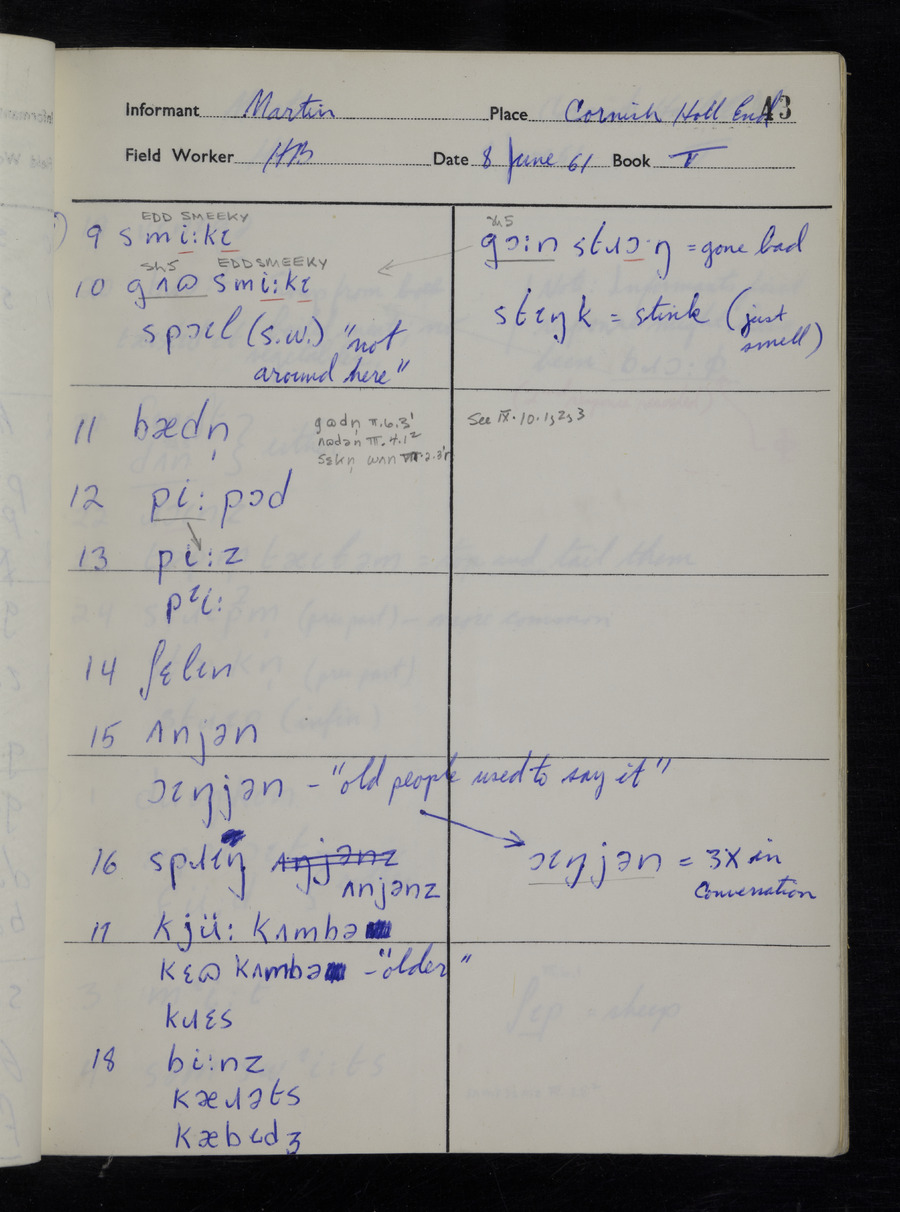 Informant Martin Place Cornish Holl End A3
Field Worker HB Date 8 June 61 Book V
EDD SMEEKY
9 smi:kɪ
sh5 EDD SMEEKY
10 gʌɷ smi:kɪ
spɔɪl (s.w.) "not
around here"
gɔ:n stɹɔ·ŋ = gone bad
stɪŋk = stink (just
smell)
11 bædn̩
gɷdn̩ II.6.3
ʌɷdən III.4.1
sɛkn̩
See IX.10.1,2,3
12 pi: pɔd
13 pi:z
pᶦi:z
14 ʃɛlɪn
15 ʌnjən
ɔɪŋjən - "old people used to say it"
16 spɹɪŋ ʌŋjənz
ʌnjənz
ɔɪŋjən = 3X in
Conversation
17 kjü: kʌmbə
kɛɷ kʌmbə - "older"
kɹɛs
18 bi:nz
kæɹəts
kæbɪdʒ